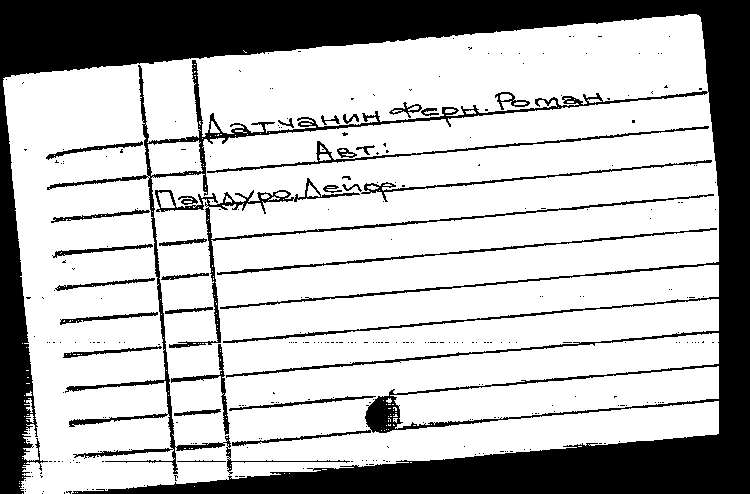 Датчанин Ферн. Роман.
Авт.:
Пандуро, Лейф.